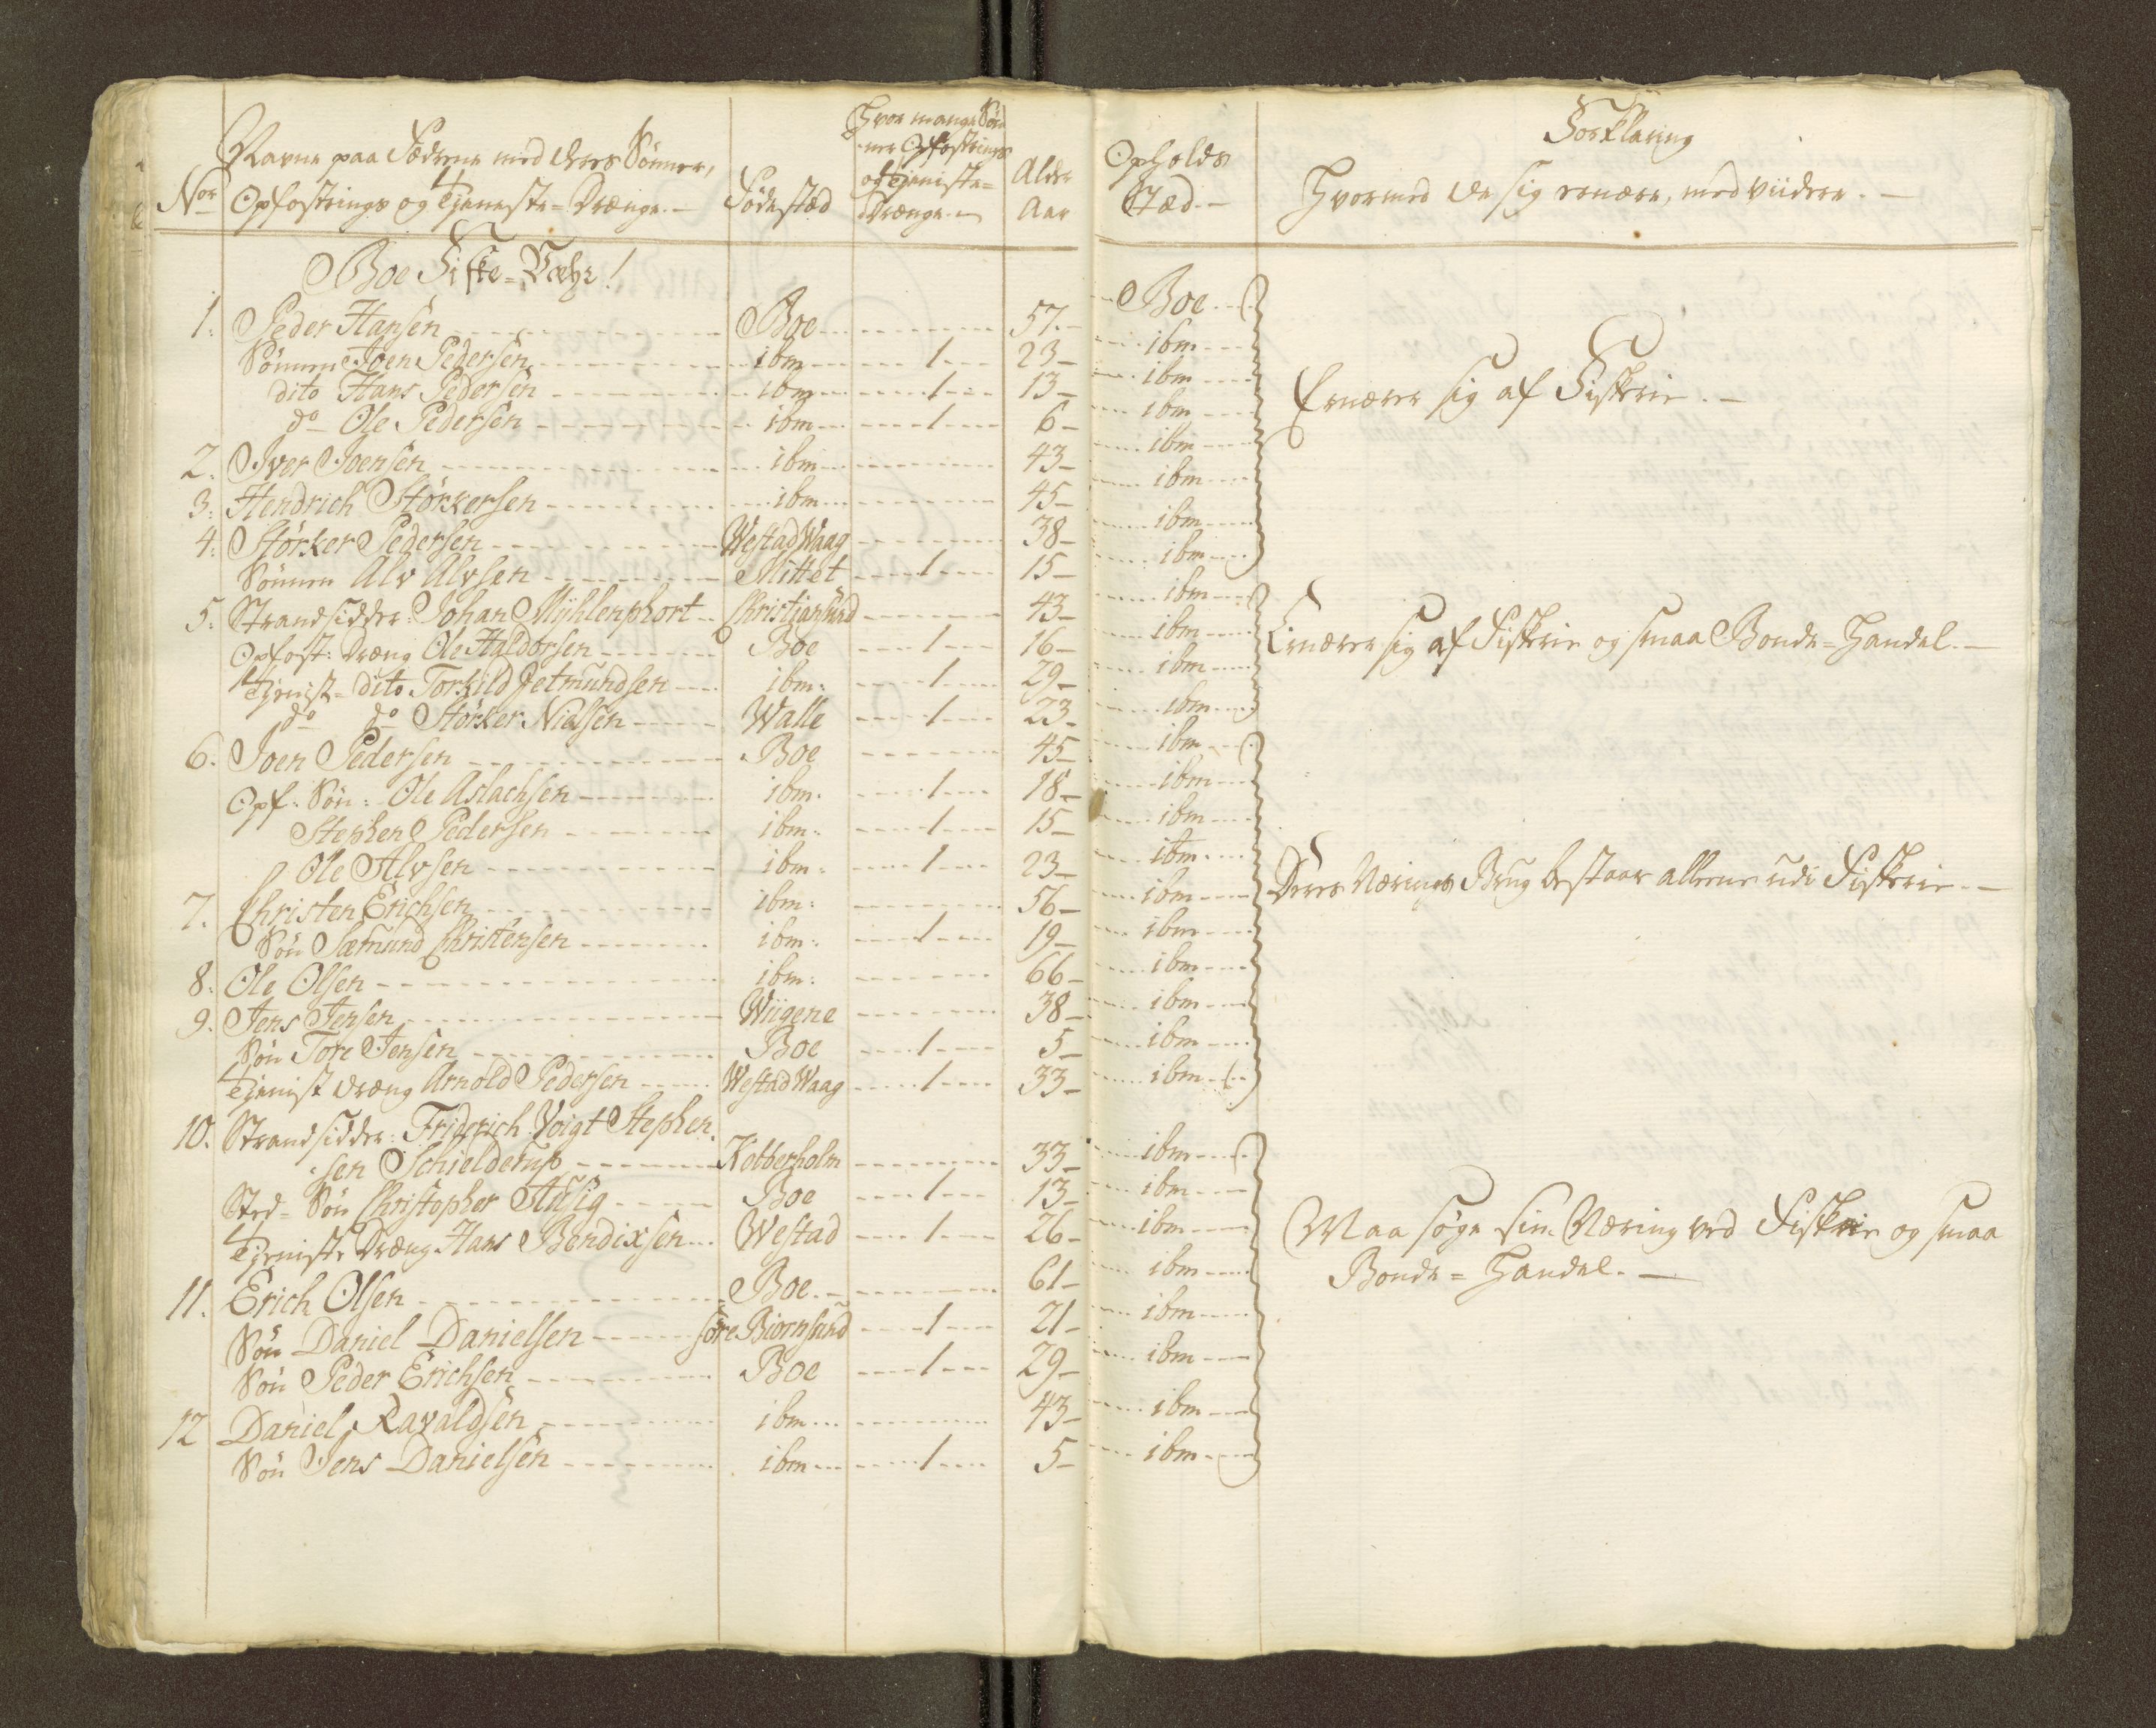 Nor
Navne paa Fædrene med deres Sönner,
Opfostrings og Tjeneste-Drænge.-
Födestæd
Hvor mange Sön-
ner Opfostrings
og Tjeniste-
Drænge.-
Alder
Aar
Opholds
Stæd.-
Forklaring
Hvormed de sig ernære, med viidere.-
Boe Fiske-Væhr!
1. Peder Hansen Boe 57.- Boe
Sönnen Joen Pedersen ibm 1 23- ibm
dito Hans Pedersen ibm 1 13- ibm
do Ole Pedersen ibm 1 6- ibm
Ernærer sig af Fiskerie.-
2. Iver Joensen ibm 43- ibm
3. Hendrich Störkersen ibm 45- ibm
4. Störker Pedersen Westad Waag 38- ibm
Sönnen Alv Alvsen Mittet 1 15- ibm
5. Strandsidder: Johan Mühlenphort Christiansund 43- ibm
Opfost: Dræng Ole Haldorsen Boe 1 16- ibm
Ernærer sig af Fiskerie og smaa Bonde-Handel.-
Tjenist- dito Torkild Jetmundsen ibm: 1 29- ibm
do do Störker Nielsen Walle 1 23- ibm
6. Joen Pedersen Boe 45- ibm
Opf: Sön: Ole Aslachsen ibm. 1 18- ibm
Stephen Pedersen ibm: 1 15- ibm
Ole Alvsen ibm: 1 23- ibm
7. Christen Erichsen ibm: 56- ibm
Deres Nærings Brug bestaar alleene udi Fiskerie.-
Sön Sæmund Christensen ibm: 1 19- ibm
8. Ole Olsen ibm: 66- ibm
9. Jens Jensen Wiigene 38- ibm
Sön Tore Jensen Boe 1 5- ibm
Tjenist dræng Arnold Pedersen Westad Waag 1 33- ibm
10. Strandsidder: Friderich Voigt Stephen-
sen Schielderup Kobberholm 33- ibm
Sted-Sön Christopher Ausig Boe 1 13- ibm
Tjeniste Dræng Hans Bendixsen Westad 1 26- ibm
Maa söge sin Næring ved Fiskerie og smaa
Bonde-Handel.-
11. Erich Olsen Boe.- 61- ibm
Sön Daniel Danielsen söre Biornsund 1 21- ibm
Sön Peder Erichsen Boe 1 29- ibm
12 Daniel Ravaldsen ibm 43- ibm
Sön Jens Danielsen ibm 1 5- ibm